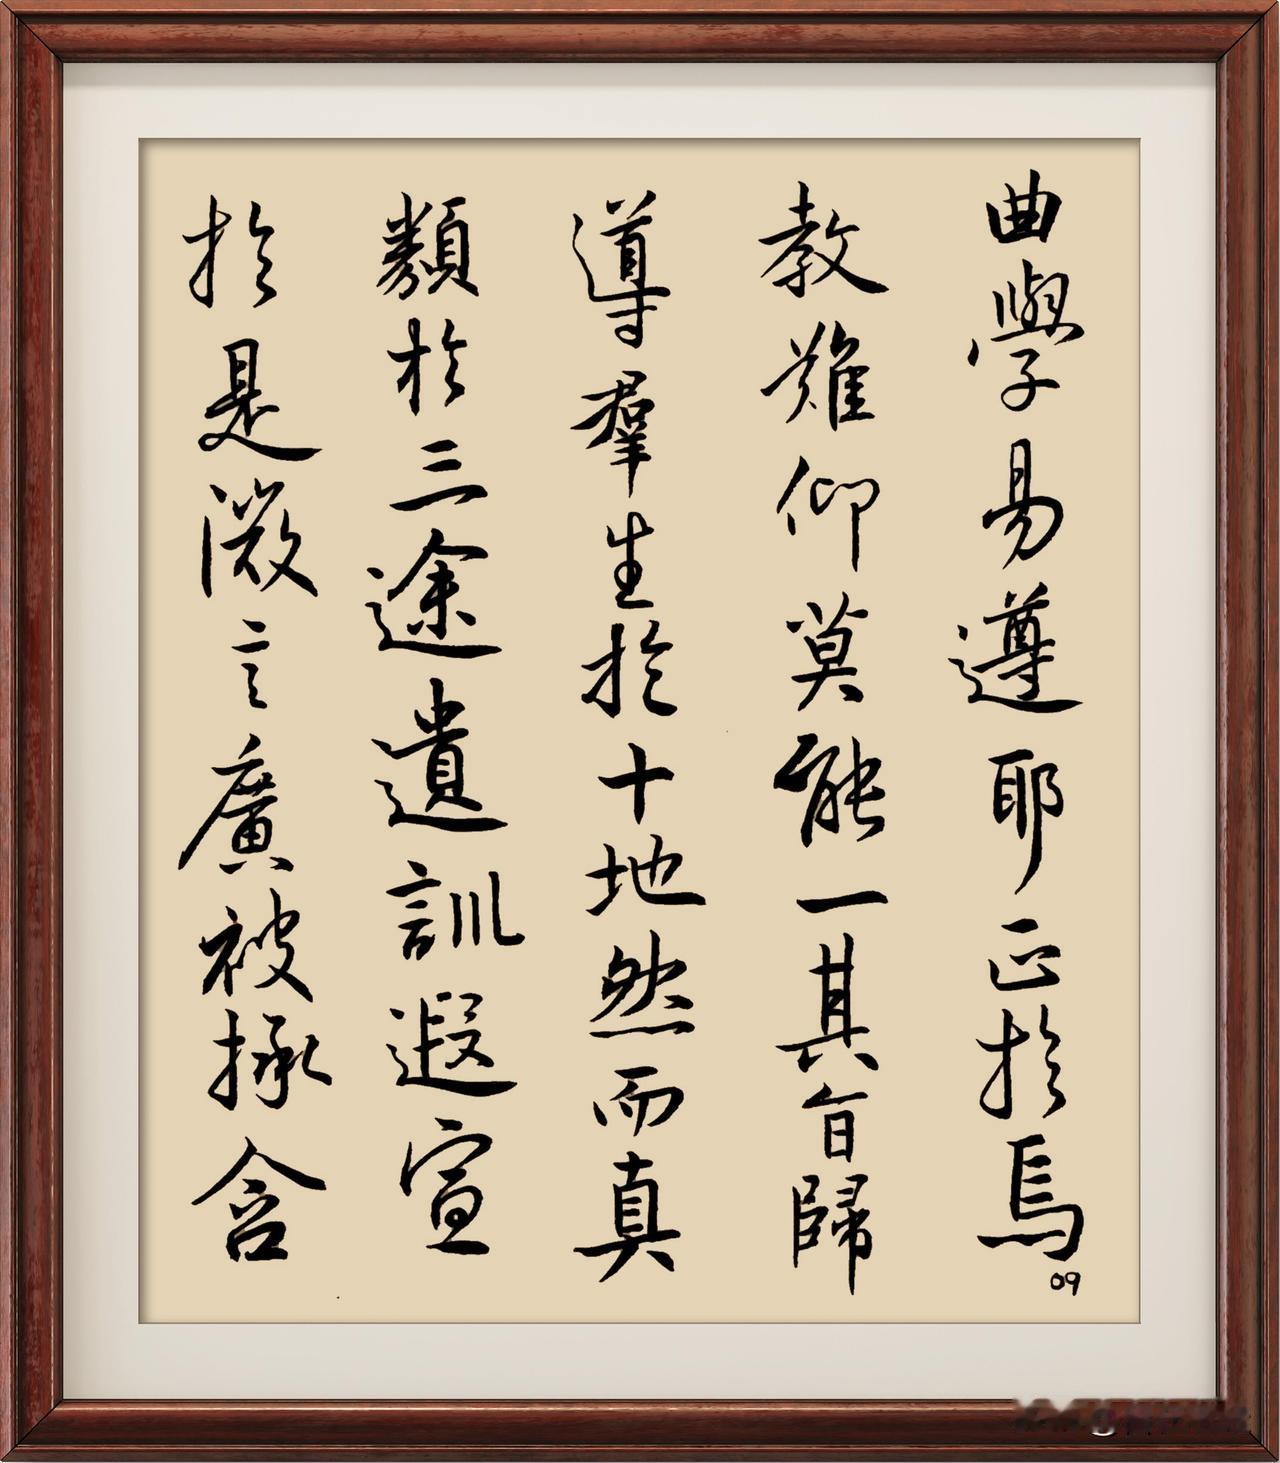 曲學易遵耶正於焉
09
教難仰莫能一其旨歸
導羣生於十地然而真
類於三途遺訓遐宣
於是微言廣被拯含